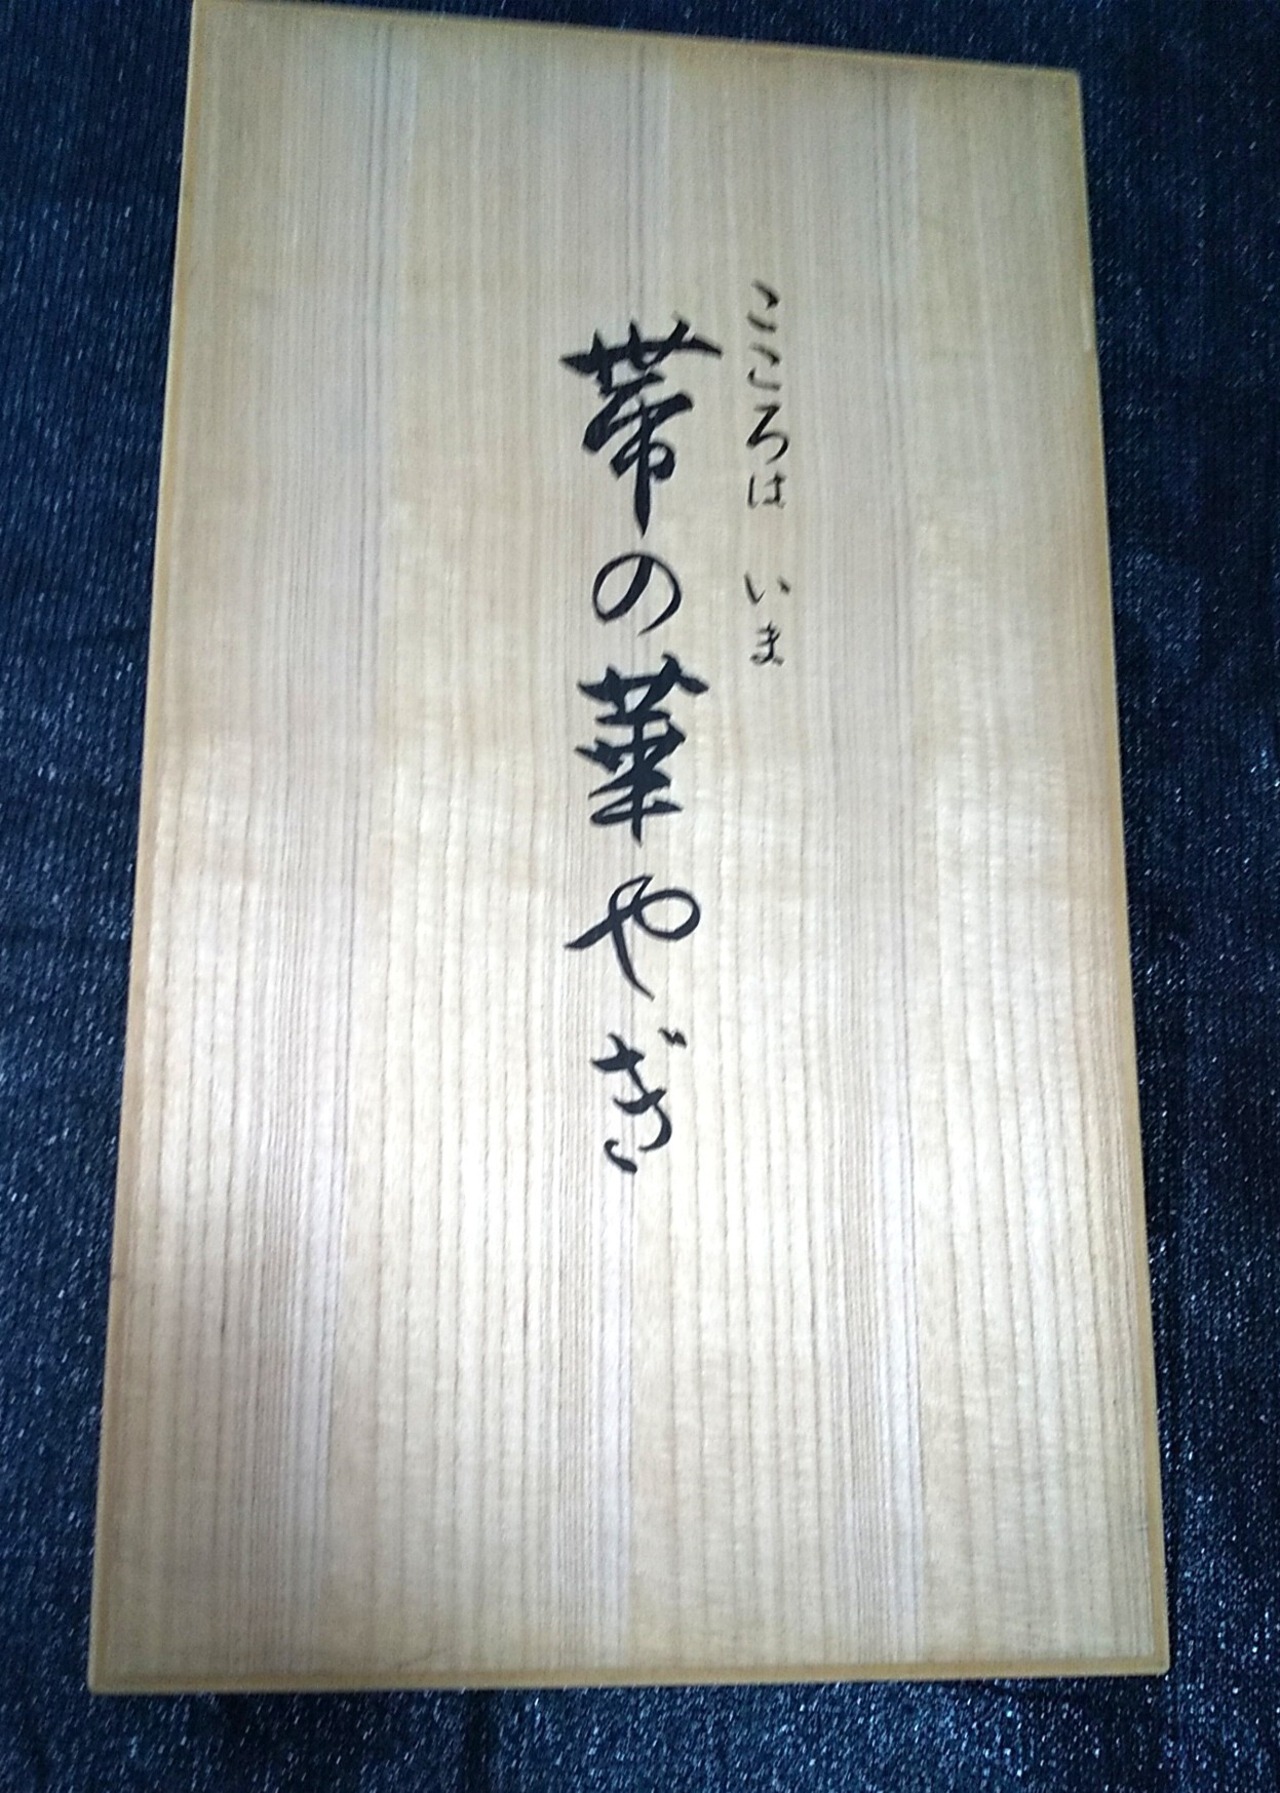 こころは いま
帯の華やぎ